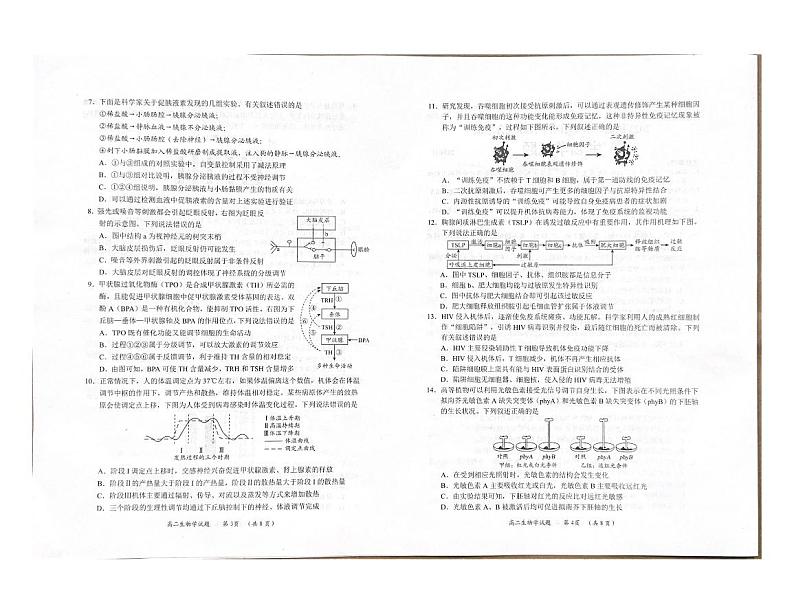 7．下面是科学家关于促胰液素发现的几组实验，有关叙述错误的是
①稀盐酸→小肠肠腔→胰腺分泌胰液；
②稀盐酸→静脉血液→胰腺不分泌胰液；
③稀盐酸→小肠肠腔（去除神经）→胰腺分泌胰液；
④刮下小肠黏膜加入稀盐酸研磨制成提取液，注入狗的静脉→胰腺分泌胰液．
A．①与③组成的对照实验中，自变量控制采用了减法原理
B．①与②组对比说明，胰腺分泌胰液的过程不受神经调节
C．①②③④组说明，胰腺分泌胰液与小肠黏膜产生的物质有关
D．可以通过检测血液中促胰液素的含量对上述实验进行验证
8．强光或噪音等刺激都会引起眨眼反射，右图为眨眼反
射的示意图。下列说法错误的是
A．图中结构 a 为视神经元的树突末梢
B．大脑皮层损伤后，眨眼反射仍可能发生
C．噪音等外界刺激引起的眨眼反射属于非条件反射
D．大脑皮层对眨眼反射的调控体现了神经系统的分级调节
大脑皮层
a
b
脑干
眼睑
9．甲状腺过氧化物酶（TPO）是合成甲状腺激素（TH）所必需的
酶，且能促进甲状腺细胞中促甲状腺激素受体基因的表达，双
酚 A（BPA）是一种有机化合物，能抑制 TPO 活性。右图为下
丘脑—垂体—甲状腺轴及 BPA 的作用位点，下列说法错误的是
A．TPO 既有催化功能又能调节细胞的生命活动
B．过程①②③属于分级调节，可以放大激素的调节效应
C．过程④⑤⑥属于负反馈调节，利于维持 TH 含量的相对稳定
D．由图可知，BPA 可使 TH 含量减少，TRH 和 TSH 含量增多
下丘脑
TRH ①
垂体
TSH ②
甲状腺
BPA
TH ③
④
⑤
⑥
多种生命活动
10．正常情况下，人的体温调定点为 37℃左右，如果体温偏离这个数值，机体会在体温
调节中枢的作用下，调节产热和散热，维持体温相对稳定。某些病原体产生的致热
原会使调定点上移，下图为人体受到病毒感染时体温变化过程，下列说法错误的是
I 体温上升期
II 高温持续期
III 体温下降期
体温曲线
调定点曲线
I II III
发热过程的三个时期
A．阶段 I 调定点上移时，交感神经兴奋促进甲状腺激素、肾上腺素的释放
B．阶段 II 的产热量大于阶段 I 的产热量，阶段 II 的散热量大于阶段 I 的散热量
C．阶段III机体主要通过辐射、传导、对流以及蒸发等方式来增加散热
D．三个阶段的生理性调节均通过下丘脑控制下的神经、体液调节完成
高二生物学试题 第 3页 （共 8 页）
11．研究发现，吞噬细胞初次接受抗原刺激后，可以通过表观遗传修饰产生某种细胞因
子，并且吞噬细胞的这种功能变化能形成免疫记忆，这种非特异性免疫记忆现象被
称为“训练免疫”，过程如下图所示，下列叙述正确的是
初次刺激
二次刺激
细胞因子
吞噬细胞
吞噬细胞表观遗传修饰
A．“训练免疫”不依赖于 T 细胞和 B 细胞，属于第一道防线的免疫记忆
B．二次抗原刺激后，吞噬细胞可产生更多的细胞因子与抗原特异性结合
C．内源性抗原诱导的“训练免疫”可能导致自身免疫病患者的症状加剧
D．“训练免疫”可以提升机体抗病毒能力，体现了免疫系统的监视功能
12．胸腺间质淋巴生成素（TSLP）在诱发过敏反应中有重要作用，其作用机理如下图。
下列说法正确的是
TSLP
激活
细胞a
细胞因子
刺激
细胞b
细胞c
抗体
肥大细胞
释放组织胺等物质
过敏反应
分泌
呼吸道上皮细胞
过敏原
A．图中 TSLP、细胞因子、抗体、组织胺都是信息分子
B．细胞 b、肥大细胞均与过敏原发生特异性识别
C．图中抗体与肥大细胞结合却可引起该过敏反应
D．肥大细胞释放的组织胺可引起毛细血管扩张属于体液调节
13．HIV 侵入机体后，逐渐使免疫系统瘫痪，功能瓦解。科学家利用人的成熟红细胞制
作“细胞陷阱”，引诱 HIV 病毒识别并侵染，最后随红细胞的死亡而被清除。下列
有关叙述错误的是
A．HIV 主要侵染辅助性 T 细胞导致机体免疫功能下降
B．HIV 侵入机体后，T 细胞减少，机体不再产生相应抗体
C．陷阱细胞膜上需具有能与 HIV 表面蛋白识别结合的受体
D．陷阱细胞无细胞器、细胞核，使入侵的 HIV 病毒无法增殖
14．高等植物可以利用光敏色素接受光信号调节自身生长。下图表示在不同光照条件下
拟南芥光敏色素 A 缺失突变体（phyA）和光敏色素 B 缺失突变体（phyB）的下胚轴
的生长状况，下列叙述正确的是
对照 phyA phyB
甲组：红光或白光条件
对照 phyA phyB
乙组：远红光条件
A．在受到相应光照射时，光敏色素的结构会发生变化
B．光敏色素 A 主要吸收红光或白光，光敏色素 B 主要吸收远红光
C．由实验结果可知，下胚轴对红光的反应比对远红光敏感
D．光敏色素 A、B 被激活后均可促进拟南芥下胚轴的生长
高二生物学试题 第 4页 （共 8 页）